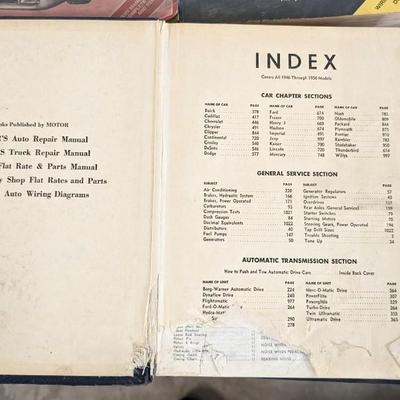 oks Published by MOTOR
'S Auto Repair Manual
S Truck Repair Manual
Flat Rate & Parts Manual
y Shop Flat Rates and Parts
Auto Wiring Diagrams
INDEX
Covers All 1946 Through 1956 Models
CAR CHAPTER SECTIONS
NAME OF CAR PAGE NAME OF CAR PAGE NAME OF CAR PAGE
Buick 378 Ford 614 Nash 785
Cadillac 417 Frazer 700 Oldsmobile 809
Chevrolet 446 Henry J 663 Packard 844
Chrysler 491 Hudson 674 Plymouth 875
Clipper 844 Imperial 491 Pontiac 910
Continental 720 Jeep 997 Rambler 785
Crosley 540 Kaiser 700 Studebaker 950
DeSoto 546 Lincoln 720 Thunderbird 614
Dodge 577 Mercury 748 Willys 997
GENERAL SERVICE SECTION
SUBJECT PAGE SUBJECT PAGE
Air Conditioning 220 Generator Regulators 57
Brakes, Hydraulic System 166 Ignition Systems 40
Brakes, Power Operated 171 Overdrives 131
Carburetors 93 Rear Axles (General Service) 159
Compression Tests 1021 Starter Switches 79
Dash Gauges 84 Starting Motors 70
Decimal Equivalents 1022 Steering Gears, Power 196
Distributors 40 Tap Drill Sizes 1022
Fuel Pumps 147 Trouble Shooting 5
Generators 50 Tune Up 34
AUTOMATIC TRANSMISSION SECTION
How to Push and Tow Automatic Drive Cars Inside Back Cover
NAME OF UNIT PAGE NAME OF UNIT PAGE
Borg-Warner Automatic Drive 224 Merc-O-Matic Drive 264
Dynaflow Drive 240 PowerFlite 307
Flightomatic 977 Powerglide 329
Ford-O-Matic Drive 264 Turbo-Drive 264
Hydra-Mat 290 Twin Ultramatic 353
278 Ultramatic Drive 365